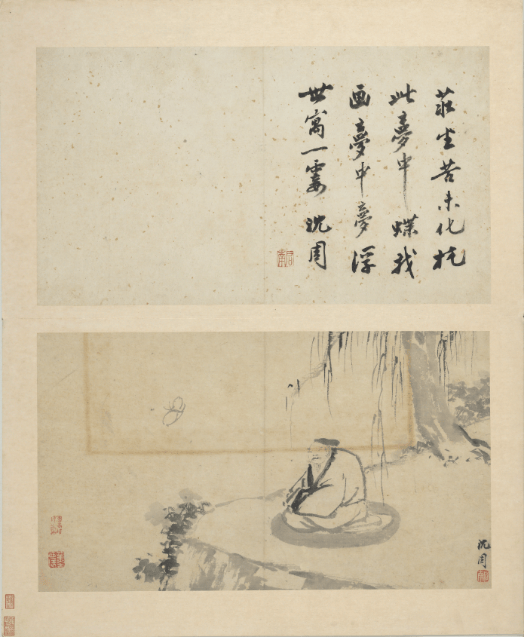 莊生苦未化托
此夢中蝶我
画夢中夢浮
世寓一霎 沈周
沈周